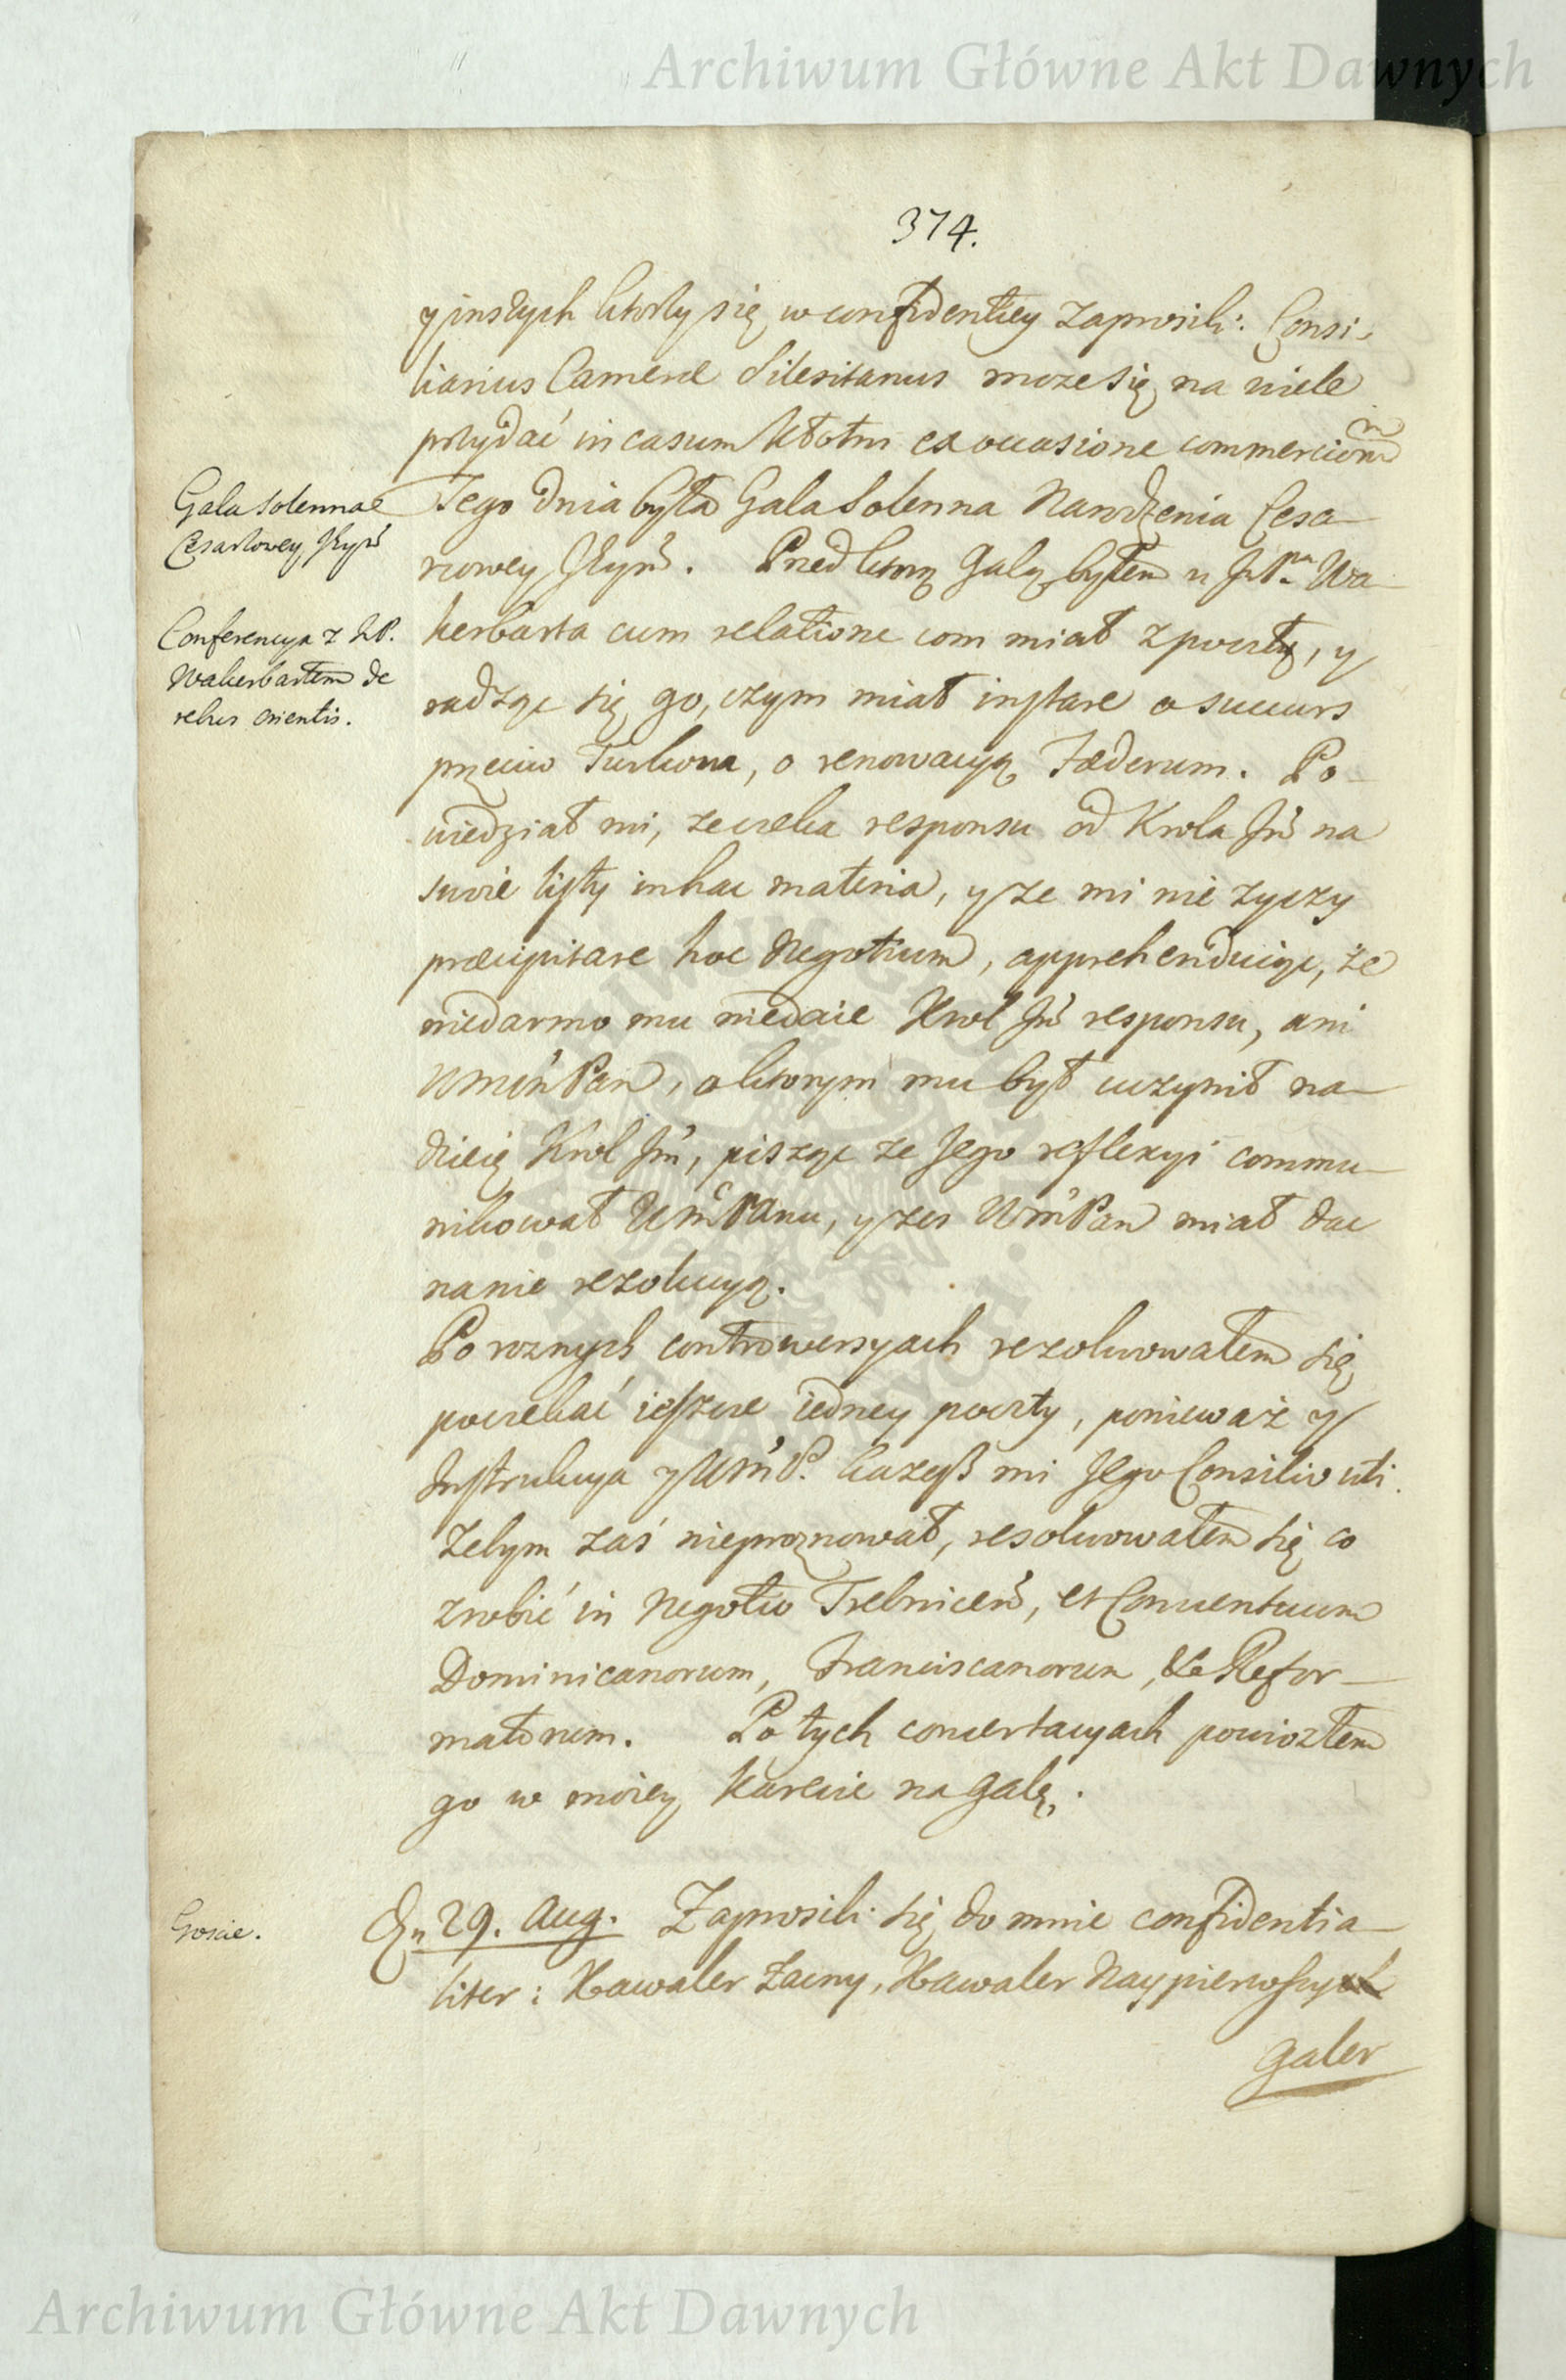 Archiwum Główne Akt Dawnych
374.
y inszych ktorzy się w confidentiey zaprosili: Consi-
liarius Camerae Silesitanus moze się na wiele
przydać in casum kłotni ex occasione commerciorum
Gala solenna
Cesarzowey Jeyms
Tego dnia była Gala Solenna Narodzenia Cesa-
rzowey Jeyms. Przed ktorą Galą byłem u JP. Wa-
Conferencya z JP.
Wakerbartem de
rebus orientis.
kerbarta cum relatione com miał z poczty, y
radząc się go, czym miał instare o succurs
przeciw Turkom, o renowacyą Faederum. Po-
wiedział mi, ze czeka responsu od Krola Jm na
swoie listy in hac materia, y ze mi nie zyczy
praecipitare hoc Negotium, apprehenduiąc, że
niedarmo mu niedaie Krol Jm responsu, ani
WmśnPan, o ktorym mu był uczynił na-
dzieię Krol Jm, pisząc ze Jego reflexyi commu-
nikował WmPanu, y zes WmPan miał dac
nanie rezolucyą.
Po roznych controwersyach rezolwowałem się
poczekać ieszcze iedney poczty, ponieważ y
Instrukcya y WmP. każesz mi Jego Consilio uti.
Zebym zaś nieproznował, resolwowałem się co
zrobić in Negotio Trebnicen, et Conventuum
Dominicanorum, Franciscanorum, & Refor-
matorum. Po tych concertacyach powiozłem
go w moiey karecie na galę.
Goscie.
Dn 29. Aug. Zaprosili się do mnie confidentia-
liter: Kawaler Zacny, Kawaler Naypierwszy
galer
Archiwum Główne Akt Dawnych